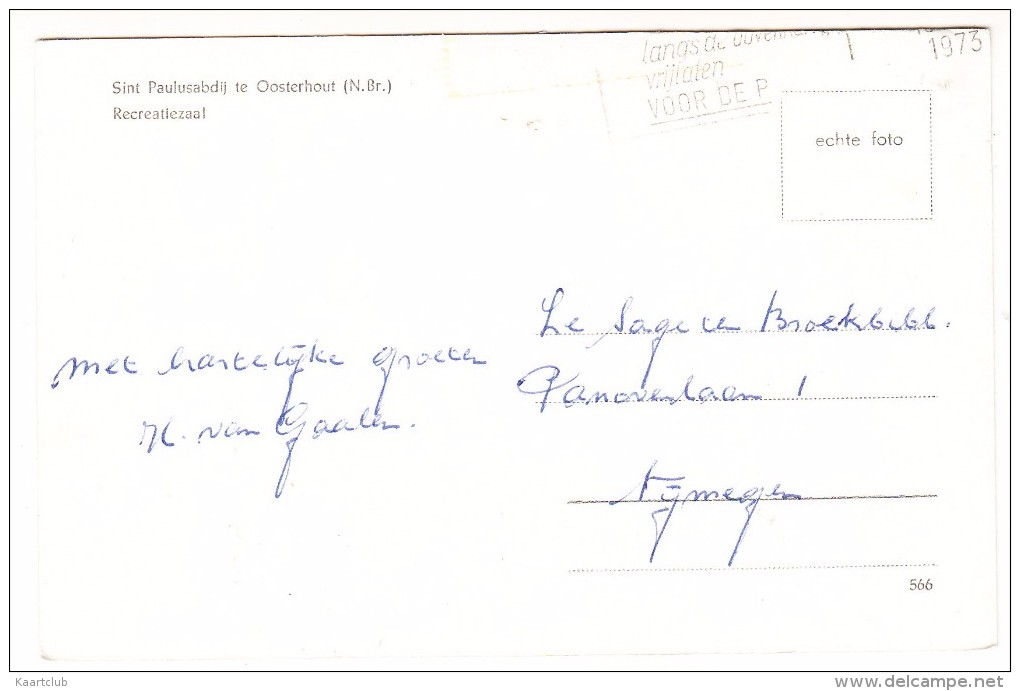 Sint Paulusabdij te Oosterhout (N.Br.)
Recreatiezaal
langs de bovenkant
vrijlaten
VOOR DE P
1973
echte foto
met hartelijke groeten
H. van Gaalen.
Le Sage ten Broekbibl.
Panovenlaan 1
Nijmegen
566
Kaartclub
www.delcampe.net